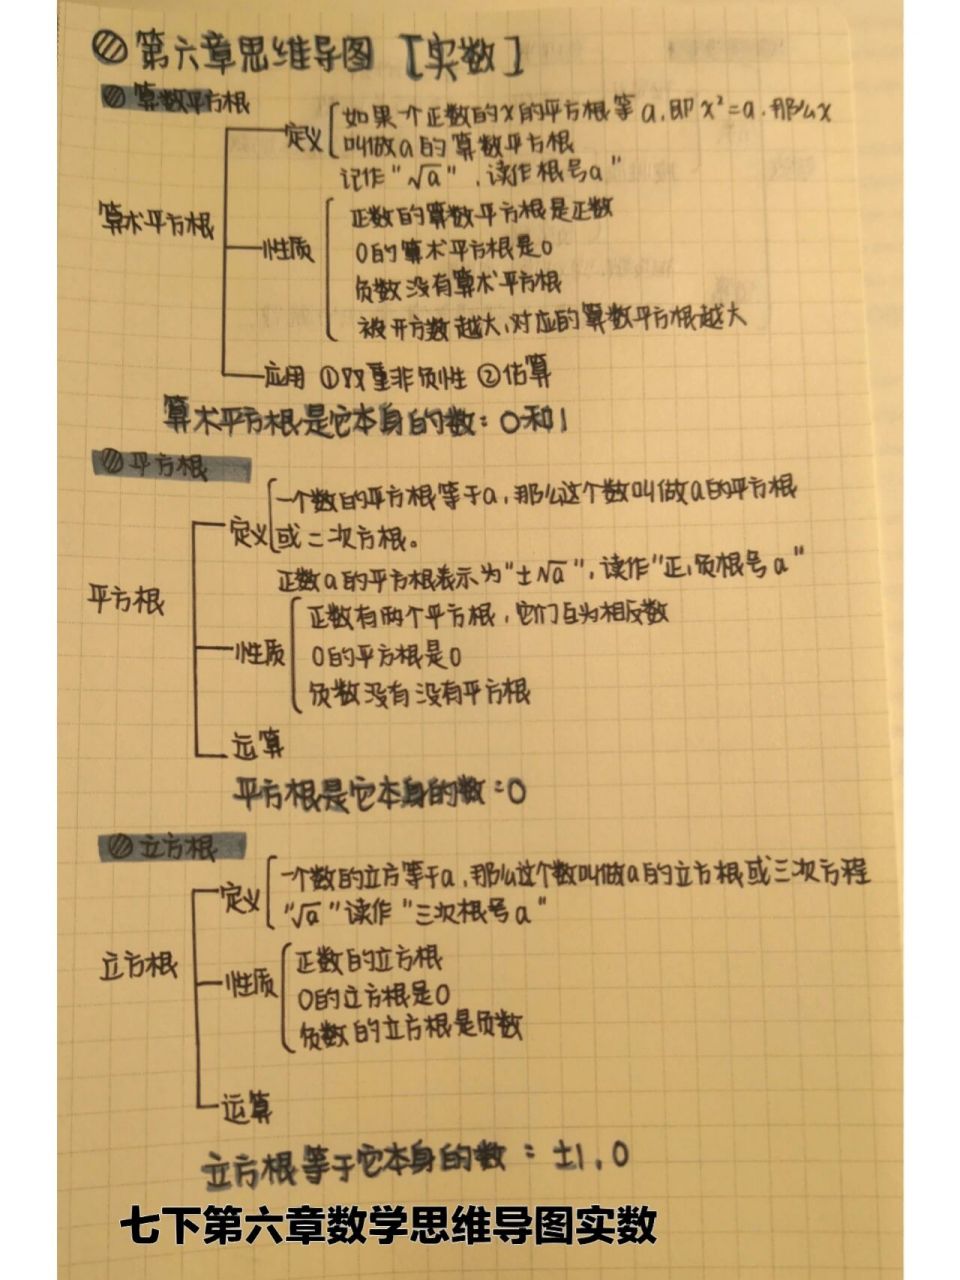 第六章思维导图 [实数]
算数平方根
定义 如果一个正数的x的平方根等a,即x²=a.那么x
叫做a的算数平方根
记作"√a",读作根号a"
算术平方根
性质
正数的算数平方根是正数
0的算术平方根是0
负数没有算术平方根
被开方数越大,对应的算数平方根越大
应用 ①双重非负性 ②估算
算术平方根是它本身的数:0和1
平方根
定义 一个数的平方根等于a,那么这个数叫做a的平方根
或二次方根。
正数a的平方根表示为"±√a",读作"正,负根号a"
平方根
性质
正数有两个平方根,它们互为相反数
0的平方根是0
负数没有没有平方根
运算
平方根是它本身的数:0
立方根
定义 一个数的立方等于a,那么这个数叫做a的立方根或三次方程
"√a"读作"三次根号a"
立方根
性质
正数的立方根
0的立方根是0
负数的立方根是负数
运算
立方根等于它本身的数:±1,0
七下第六章数学思维导图实数